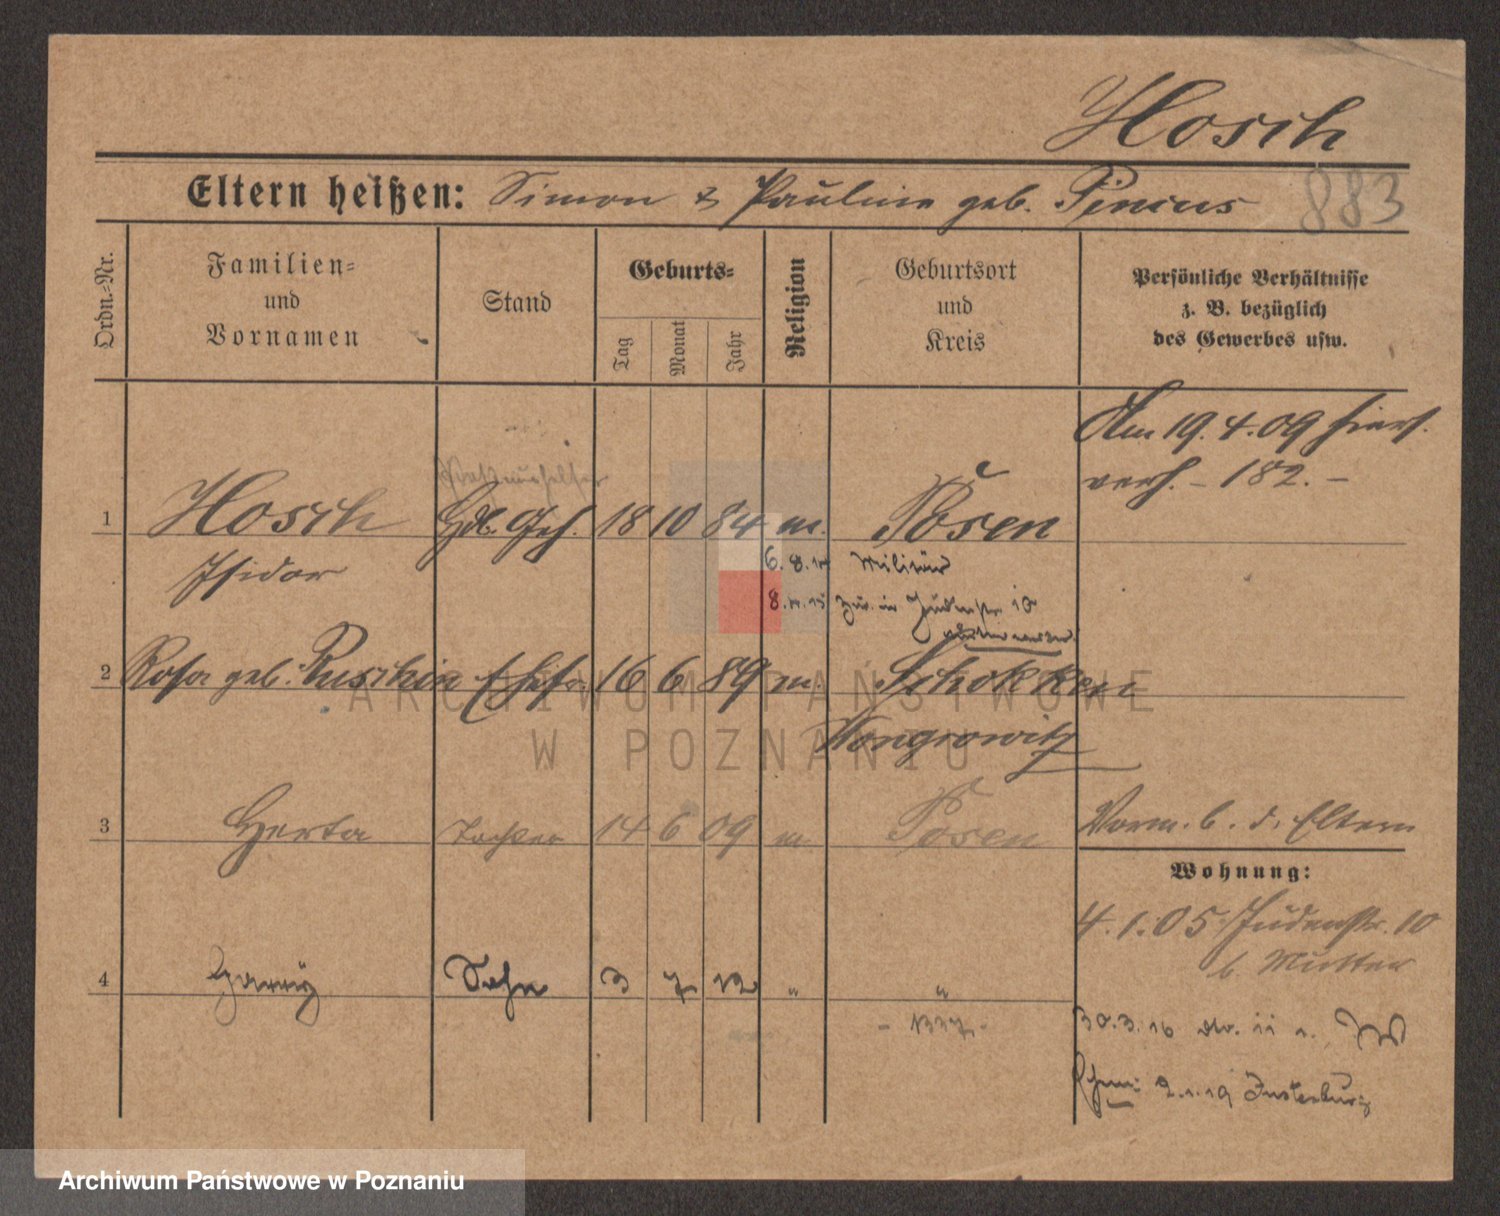 Hosch
Eltern heißen: Simon & Pauline geb. Pincus 883
Ordn.-Nr.
Familien-
und
Vornamen
Stand
Geburts-
Tag
Monat
Jahr
Religion
Geburtsort
und
Kreis
Persönliche Verhältnisse
z. B. bezüglich
des Gewerbes usw.
Am 19.4.09 hiers.
verh. - 182. -
1 Hosch Hdl. Geh. 18 10 84 m. Posen
Isidor
6.8.14 Militär
8. 15 zur. in Judenstr. 10
2 Rosa geb. Ruschin Ehefr. 16 6 89 m. Schokken
Wongrowitz
3 Herta Tochter 14 6 09 m. Posen
Vorm. b. d. Eltern
Wohnung:
4.1.05 Judenstr. 10
b. Mutter
4 Harry Sohn 3 7 12 " "
- 1337 -
30.3.16
2.1.19 Insterburg
ARCHIWUM PAŃSTWOWE
W POZNANIU
Archiwum Państwowe w Poznaniu